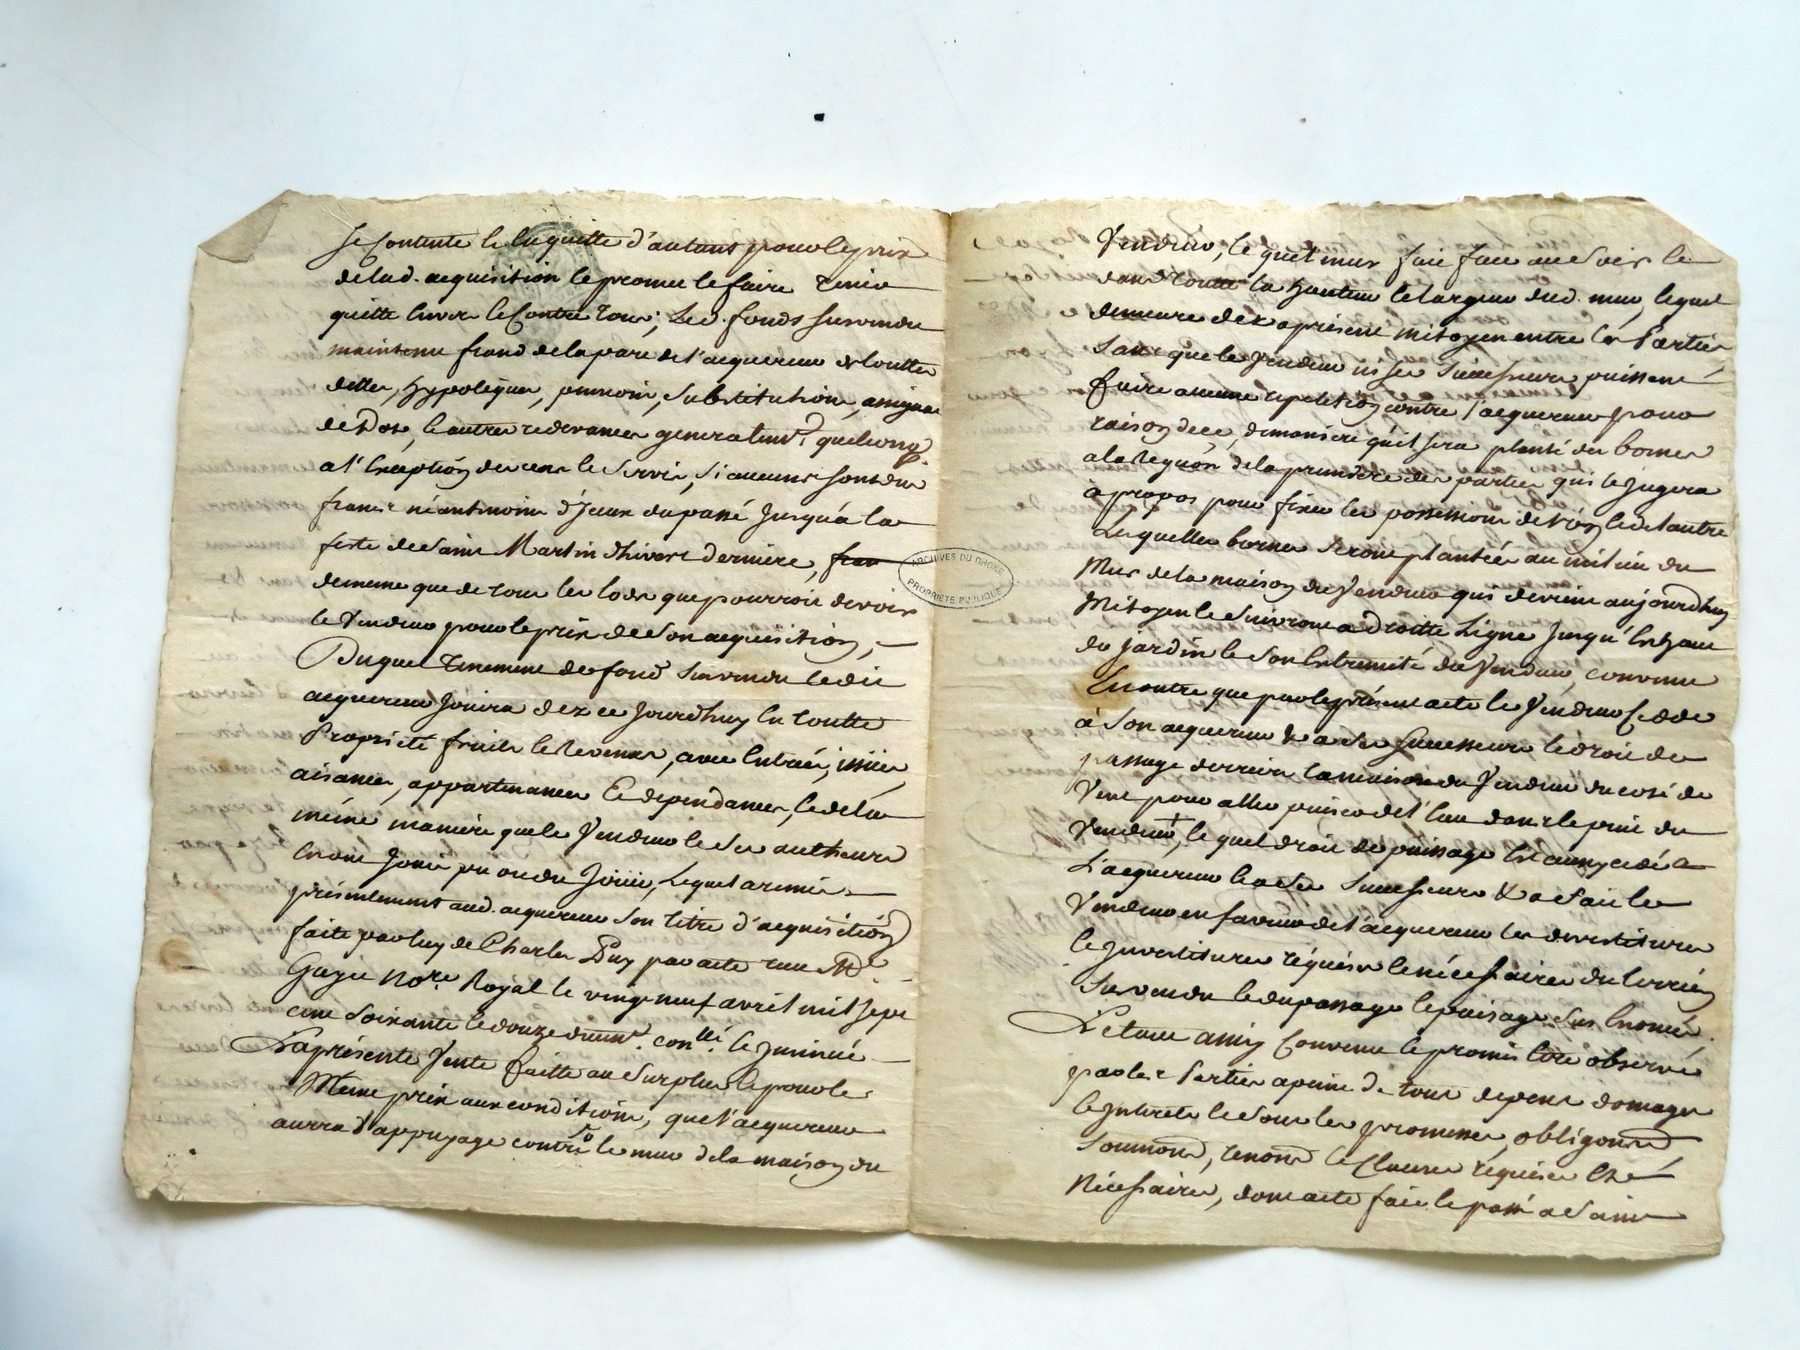 se contente et en quitte d'autant pour le prix
de lad. acquisition et promet le faire tenir
quitte envers et contre tous; Led. fonds susvendu
maintenu franc de la part de l'acquereur de toutte
dettes, hypoteques, pensions, substitution, assignas
de dot, et autres redevances generalemt. quelconq.
a l'Exception des cens et servis, si aucuns sont dus
francs néantmoins d'Yceux du passé jusqu'à la
feste de Saint Martin d'hivert derniere,
de meme que de tous les lods que pourroit devoir
le Vendeur pour le prix de son acquisition,
Duquel tenement de fond susvendu ledit
acquereur jouira dez ce jourdhuy en toutte
Propriété fruits et revenus, avec entrées, issües,
aisances, appartenances Et dependances, et de la
même maniere que le Vendeur et ses autheurs
en ont joui pu ou du joüir, Lequel a remis
présentement aud. acquereur son titre d'acquisition
faite par luy de Charles Puy par acte reçu Me
Guyie Nore. Royal le vingt neuf avril mil sept
cent soixante et douze duemt. conllé. et insinué
La présente Vente faitte au surplus et pour le
Même prix aux conditions, que l'acquereur
aurra d'appuyage contre le mur de la maison du
Vendeur, le quel mur fait face au soir et ce
dans toutte la hauteur et largeur dud. mur, lequel
demeure dez a présent mitoyen entre les Parties
sans que le Vendeur ni ses successeurs puissent
faire aucune repetition contre l'acquereur pour
raison de ce, de maniere qu'il sera planté des bornes
a la requon. de la premiere des parties qui le jugera
à propos pour fixer les possessions de l'un et de l'autre
Lesquelles bornes seront plantées au milieu du
Mur de la maison du Vendeur qui devient aujourdhuy
Mitoyen et suivront a droitte Ligne jusqu'en haut
du jardin et son Extremité du Vendeur, convenu
En outre que par le présent acte le Vendeur cedde
à son acquereur & a ses successeurs le droit de
passage derriere la maison du Vendeur du coté de
Vent pour aller puiser de l'eau dans le puit du
Vendeur, le quel droit de puisage est aussy cédé a
L'acquereur et a ses successeurs & a fait le
Vendeur en faveur de l'acquereur les devestitures
et Investitures réquises et nécessaires du terrein
susvendu et du passage et puisage sus Enoncé
Le tout ainsy convenu et promis être observé
par les Parties a peine de tous depens domages
et Interets et sous les promesses, obligons
soumons, renons et Clauses réquises Et
Nécessaires, dont acte fait et passé a Saint
ARCHIVES DU RHONE
PROPRIETE PUBLIQUE